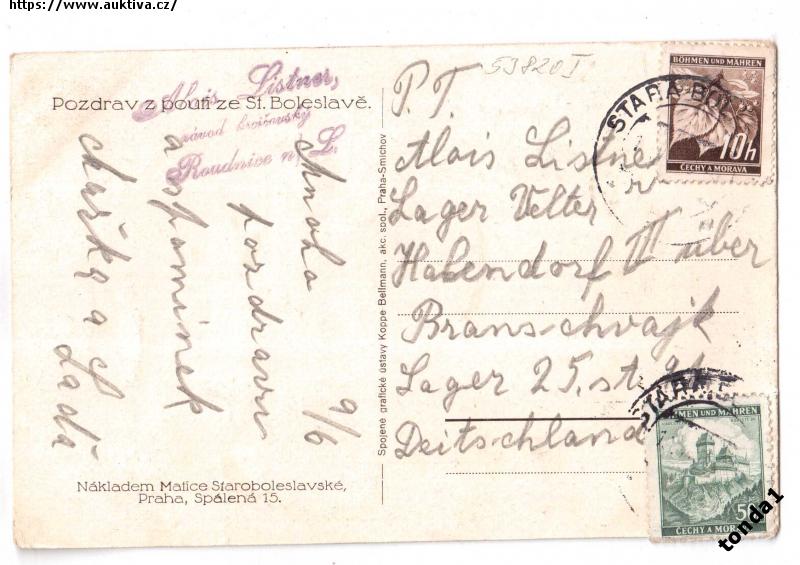 https://www.auktiva.cz/
Pozdrav z pouti ze St. Boleslavě.
Alois Listner,
závod krejčovský
Roudnice n/L.
Mnoho
pozdravu
a vspomínek
Laďa
9/6
Nákladem Matice Staroboleslavské,
Praha, Spálená 15.
Spojené grafické ústavy Koppe Bellmann, akc. spol., Praha-Smíchov
53820 I
P.T.
Alois Listner
Lager Velter
Habendorf über
Branschvajk
Lager 25, st.
Deitschland
STARÁ BOL
BÖHMEN UND MÄHREN
10h
ČECHY A MORAVA
STARÁ
BÖHMEN UND MÄHREN
50
ČECHY A MORAVA
tonda1